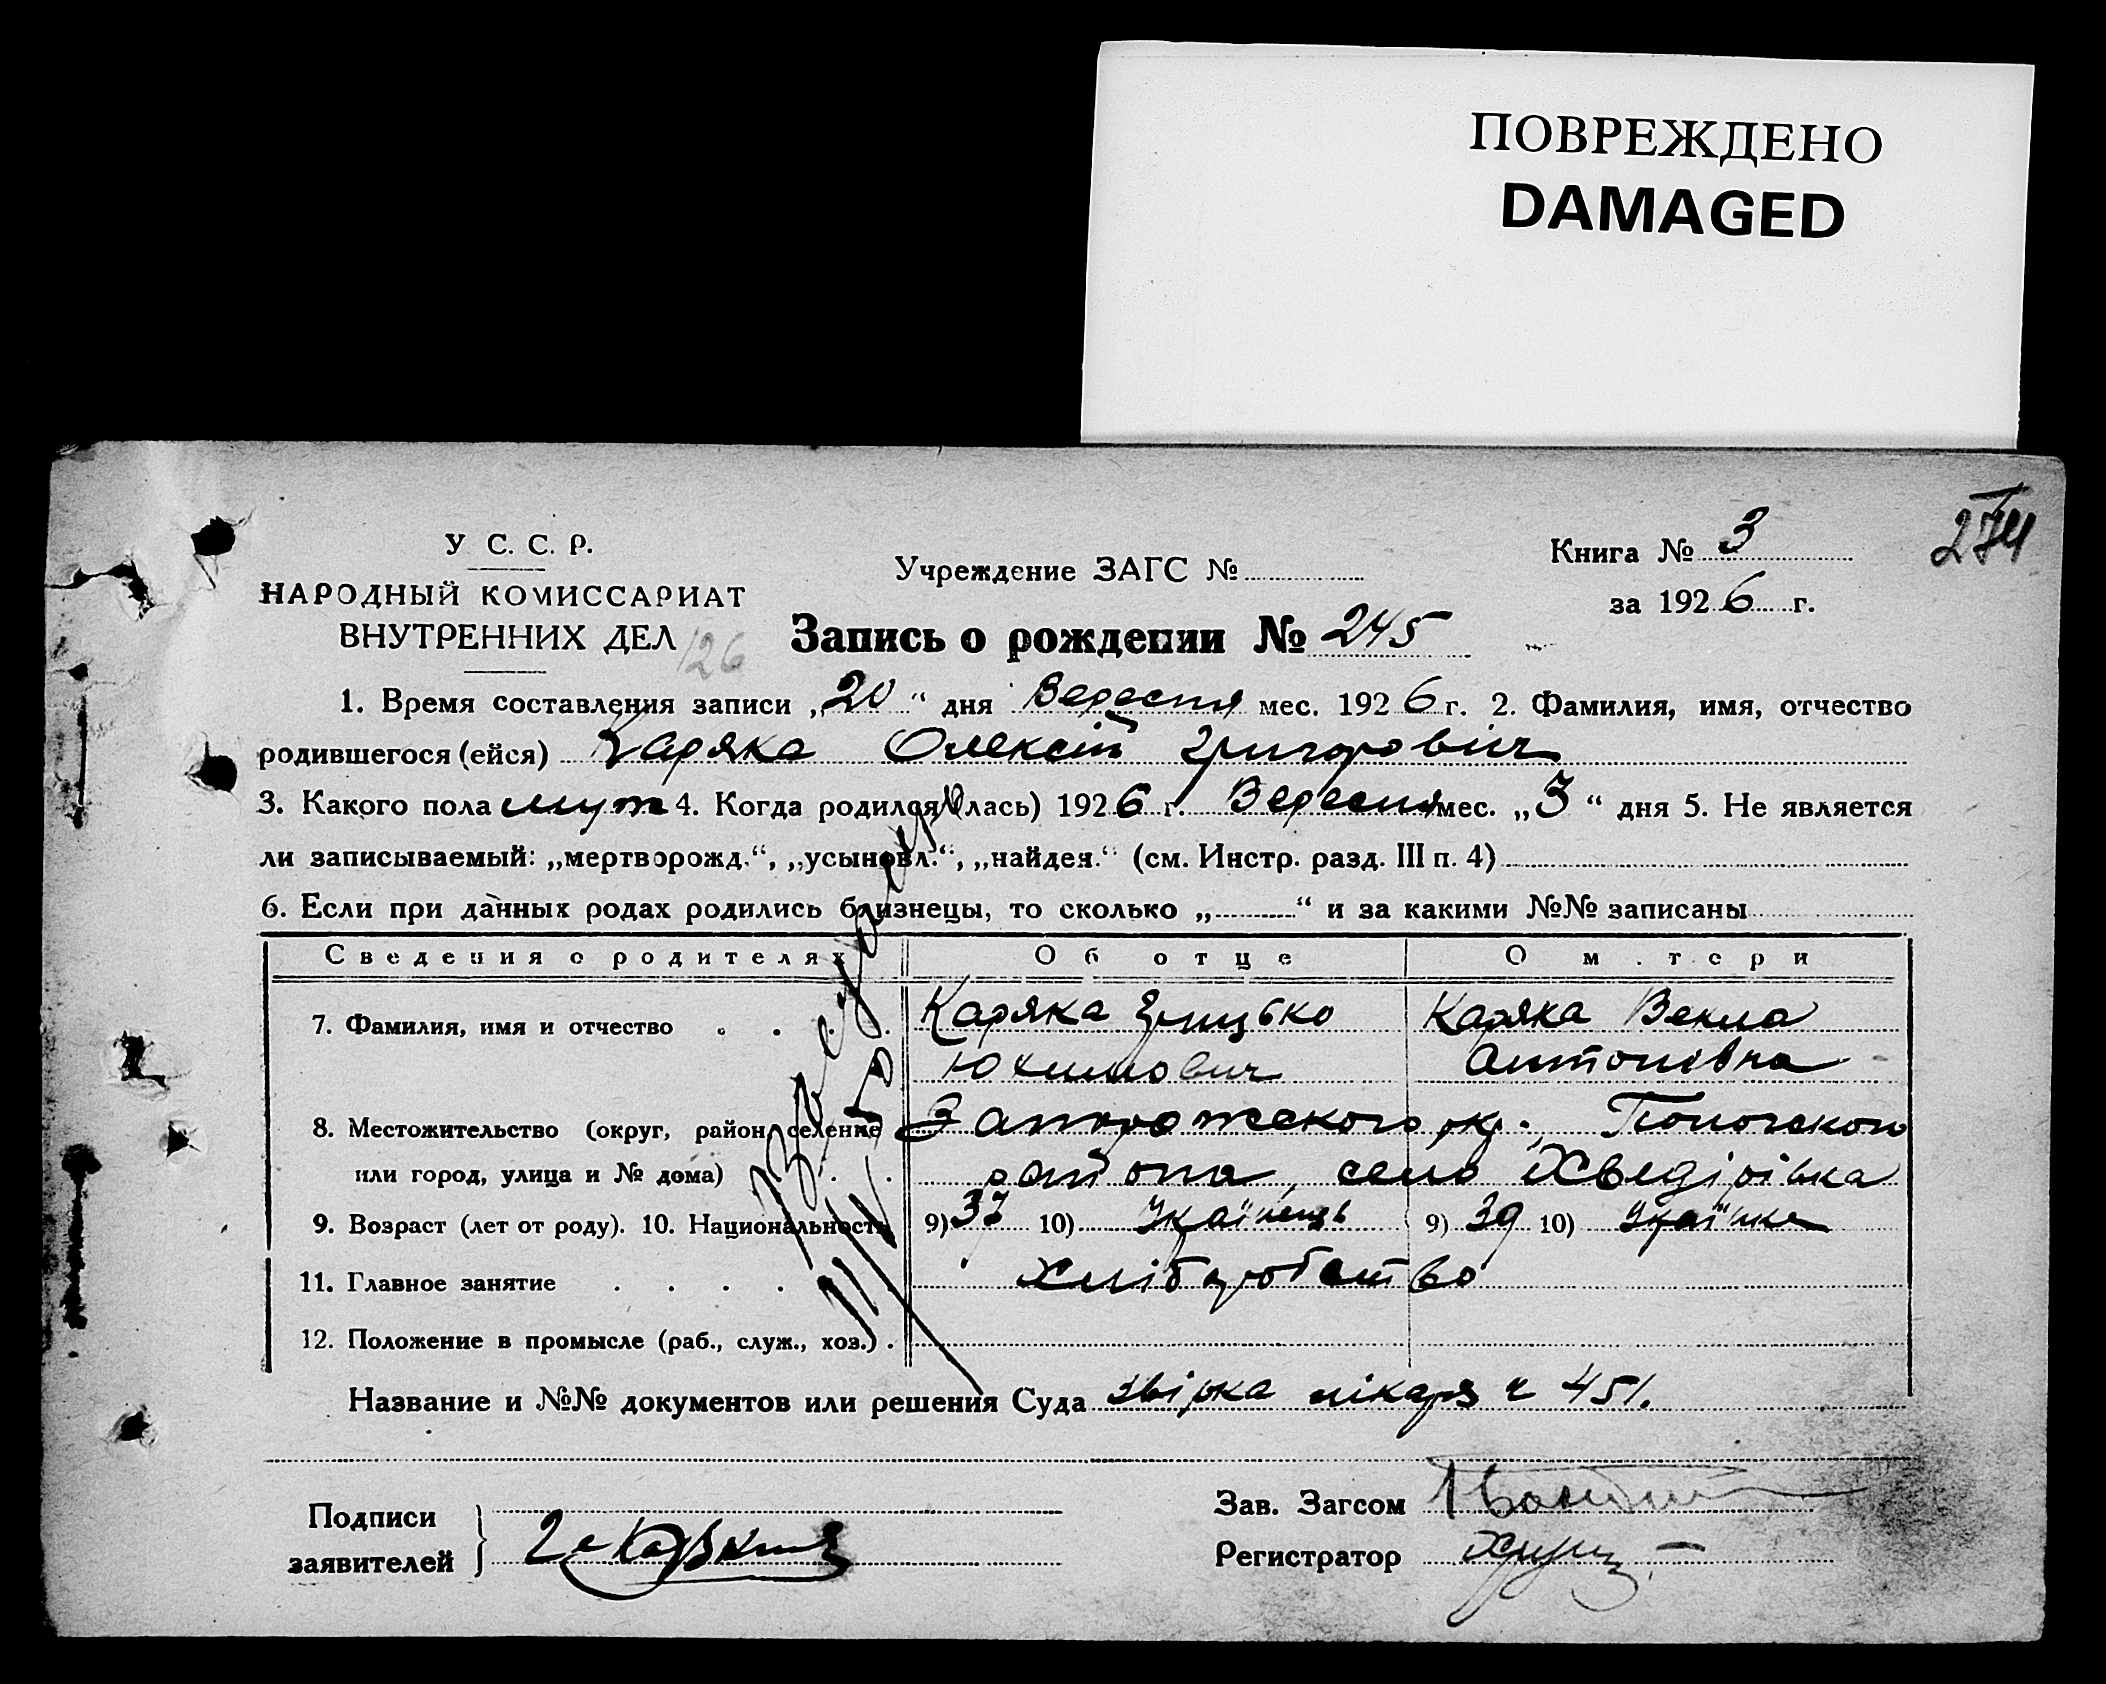 ПОВРЕЖДЕНО
DAMAGED
274
У С. С. Р.
НАРОДНЫЙ КОМИССАРИАТ
ВНУТРЕННИХ ДЕЛ 126
Учреждение ЗАГС №
Книга № 3
за 1926 г.
Запись о рождении № 245
1. Время составления записи „20“ дня Вересня мес. 1926 г. 2. Фамилия, имя, отчество
родившегося (ейся) Каряка Олексій Григорович
3. Какого пола муж 4. Когда родился (лась) 1926 г. Вересня мес. „3“ дня 5. Не является
ли записываемый: „мертворожд.“, „усыновл.“, „найден.“ (см. Инстр. разд. III п. 4)
6. Если при данных родах родились близнецы, то сколько „“ и за какими №№ записаны
Сведения о родителях Об отце О матери
7. Фамилия, имя и отчество Каряка Грицько Каряка Векла
Юхимович Антонівна
8. Местожительство (округ, район, селение Запорожского окр., Пологского
или город, улица и № дома) района, село Хведірівка
9. Возраст (лет от роду). 10. Национальность 9) 37 10) Українець 9) 39 10) Українка
11. Главное занятие Хліборобство
12. Положение в промысле (раб., служ., хоз.)
Название и №№ документов или решения Суда Звірка лікаря ч 451.
Подписи
заявителей
Зав. Загсом
Регистратор